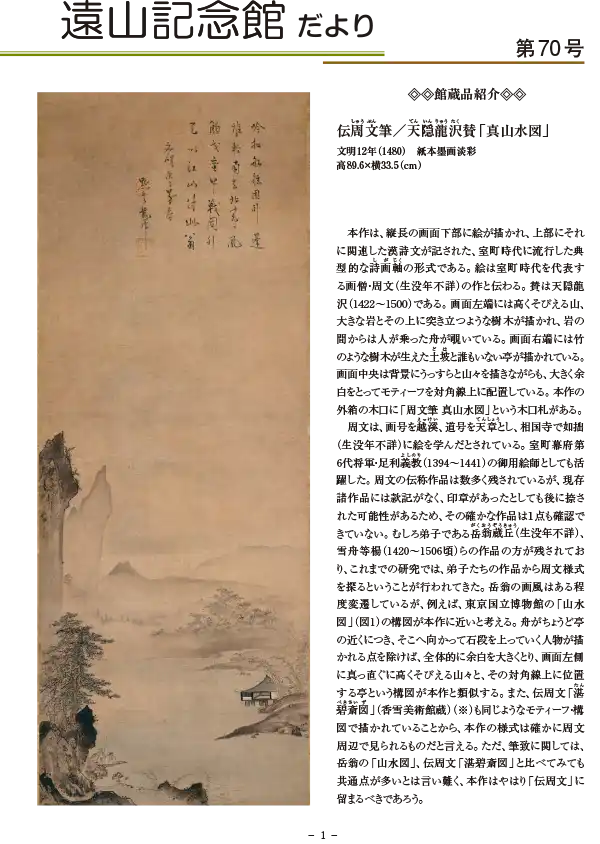 遠山記念館 だより
第70号
◇◇館蔵品紹介◇◇
伝周文筆／天隠龍沢賛「真山水図」
文明12年（1480） 紙本墨画淡彩
高89.6×横33.5（cm）
本作は、縦長の画面下部に絵が描かれ、上部にそれ
に関連した漢詩文が記された、室町時代に流行した典
型的な詩画軸の形式である。絵は室町時代を代表す
る画僧・周文（生没年不詳）の作と伝わる。賛は天隠龍
沢（1422～1500）である。画面左端には高くそびえる山、
大きな岩とその上に突き立つような樹木が描かれ、岩の
間からは人が乗った舟が覗いている。画面右端には竹
のような樹木が生えた土坡と誰もいない亭が描かれている。
画面中央は背景にうっすらと山々を描きながらも、大きく余
白をとってモティーフを対角線上に配置している。本作の
外箱の木口に「周文筆 真山水図」という木口札がある。
周文は、画号を越溪、道号を天章とし、相国寺で如拙
（生没年不詳）に絵を学んだとされている。室町幕府第
6代将軍・足利義教（1394～1441）の御用絵師としても活
躍した。周文の伝称作品は数多く残されているが、現存
諸作品には款記がなく、印章があったとしても後に捺さ
れた可能性があるため、その確かな作品は1点も確認で
きていない。むしろ弟子である岳翁蔵丘（生没年不詳）、
雪舟等楊（1420～1506頃）らの作品の方が残されてお
り、これまでの研究では、弟子たちの作品から周文様式
を探るということが行われてきた。岳翁の画風はある程
度変遷しているが、例えば、東京国立博物館の「山水
図」（図1）の構図が本作に近いと考える。舟がちょうど亭
の近くにつき、そこへ向かって石段を上っていく人物が描
かれる点を除けば、全体的に余白を大きくとり、画面左側
に真っ直ぐに高くそびえる山々と、その対角線上に位置
する亭という構図が本作と類似する。また、伝周文「湛
碧斎図」（香雪美術館蔵）（※）も同じようなモティーフ・構
図で描かれていることから、本作の様式は確かに周文
周辺で見られるものだと言える。ただ、筆致に関しては、
岳翁の「山水図」、伝周文「湛碧斎図」と比べてみても
共通点が多いとは言い難く、本作はやはり「伝周文」に
留まるべきであろう。
− 1 −